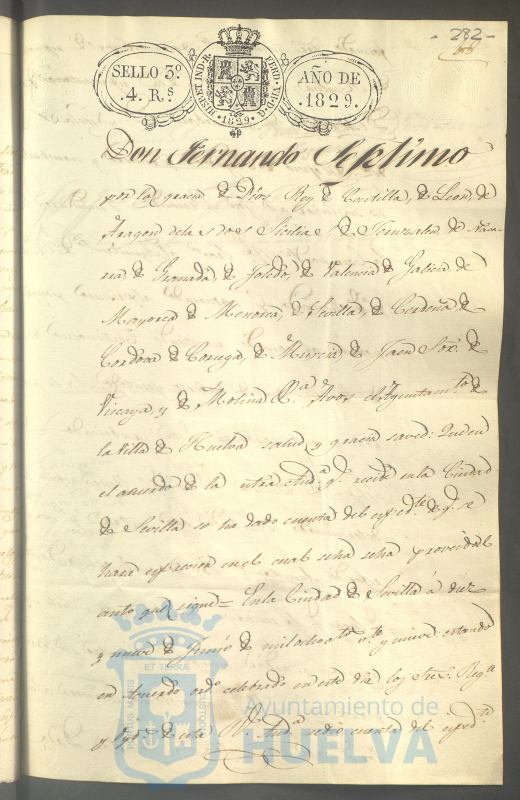 - 282 -
SELLO 3º
.4. Rˢ
HISP. ET IND. R. FERD. VII. D. G.
.1829.
AÑO DE
.1829.
Don Fernando Septimo
por la gracia de Dios Rey de Castilla, de Leon, de
Aragon de las dos Sicilias de Jerusalen de Nava-
rra de Granada, de Toledo, de Valencia de Galicia de
Mayorca de Menorca, de Sevilla, de Cerdeña, de
Cordova de Corcega, de Murcia de Jaen Sor. de
Viscaya, y de Molina &ª. A vos el Ayuntamto. de
la Villa de Huelva salud y gracia saved: Que en
el acuerdo de la nuestra Audª. qe. recide en la Ciudad
de Sevilla se ha dado cuenta del expedte. de qe. se
hará exprecion en el cual se ha proveido el
auto que sigue = En la Ciudad de Sevilla á diez
y nueve de Junio de mil ochocts. vte. y nueve: estando
en Acuerdo ordº. celebrado en este dia los Sres. Regte.
y Oydes. de esta Rl. Audª. se dio cuenta del expedte.
PORTUS MARIS ET TERRÆ CUSTODIA
Ayuntamiento de
HUELVA